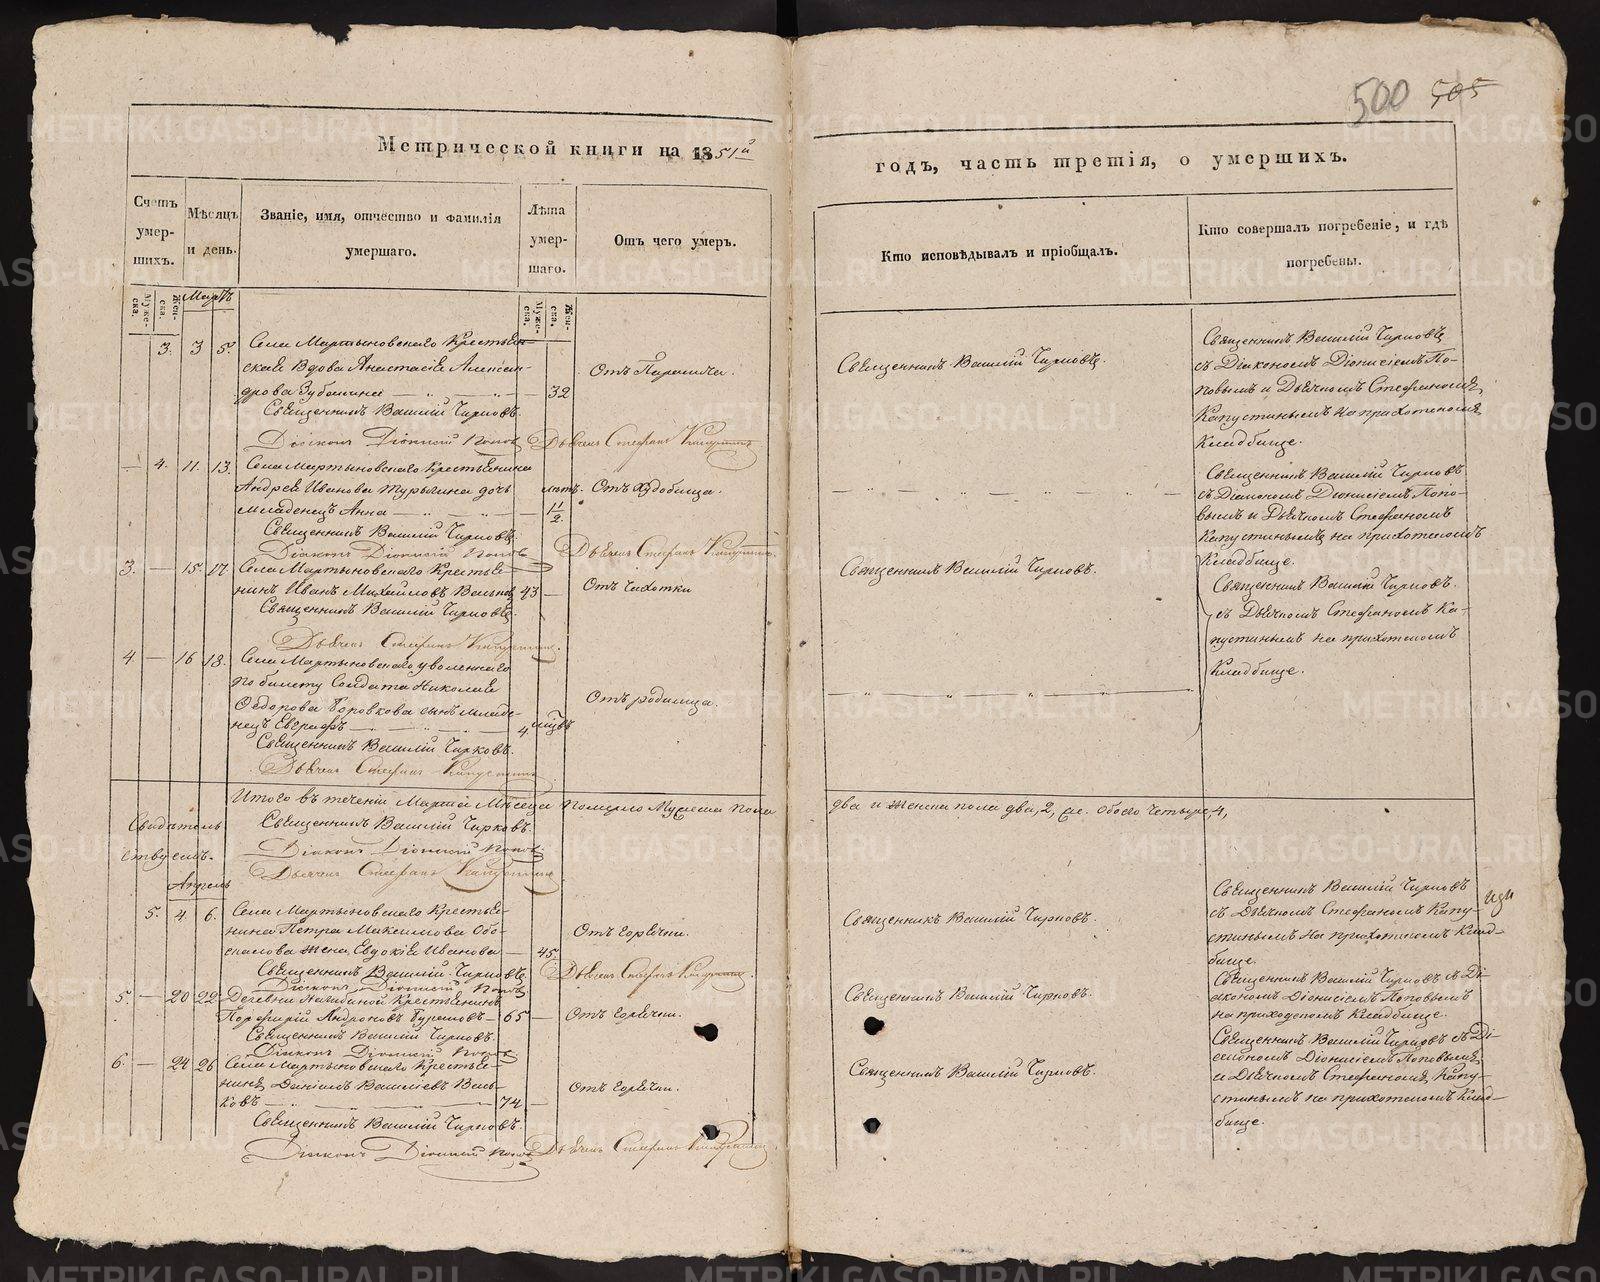 500 505
Метрической книги на 1851й
годъ, часть третія, о умершихъ.
Счетъ умер-шихъ.
Мѣсяцъ и день.
Званіе, имя, отчество и фамилія умершаго.
Лѣта умер-шаго.
Отъ чего умеръ.
Кто исповѣдывалъ и пріобщалъ.
Кто совершалъ погребеніе, и гдѣ погребены.
Муже-ска.
Жен-ска.
Мартъ
Муже-ска.
Жен-ска.
3. 3 5. Села Мартыновскаго Крестьян-
ская Вдова Анастасія Алексан-
дрова 32
Отъ Паралича.
Священникъ Василій Чирковъ.
Священникъ Василій Чирковъ
съ Діакономъ Діонисіемъ По-
повымъ и Дьячкомъ Стефаномъ
Капустинымъ на приходскомъ
Кладбище.
Священникъ Василій Чирковъ.
Діаконъ Діонисій Поповъ Дьячекъ Стефанъ Капустинъ
4. 11. 13. Села Мартыновскаго Крестьянина
Андрея Иванова дочь
младенецъ Анна лѣтъ 1 1/2.
Отъ Худобища.
Священникъ Василій Чирковъ
съ Діакономъ Діонисіемъ Попо-
вымъ и Дьячкомъ Стефаномъ
Капустинымъ на приходскомъ
Кладбище.
Священникъ Василій Чирковъ.
Діаконъ Діонисій Поповъ Дьячекъ Стефанъ Капустинъ.
3. — 15. 17. Села Мартыновскаго Крестья-
нинъ Иванъ Михайловъ 43 —
Отъ Чахотки
Священникъ Василій Чирковъ.
Священникъ Василій Чирковъ.
съ Дьячкомъ Стефаномъ Ка-
пустинымъ на приходскомъ
Кладбище.
Священникъ Василій Чирковъ.
Дьячекъ Стефанъ Капустинъ.
4 — 16 18. Села Мартыновскаго уволеннаго
по билету Солдата Николая
Ѳедорова Боровкова сынъ младе-
нецъ Евграфъ 4. мѣсяц
Отъ родимца.
Священникъ Василій Чирковъ.
Дьячекъ Стефанъ Капустинъ
Итого въ теченіи Марта Мѣсяца померло Мужеска пола
два и женска пола два, 2, а обоего четыре, 4,
Свидѣтель-
ствуемъ.
Священникъ Василій Чирковъ.
Діаконъ Діонисій Поповъ
Дьячекъ Стефанъ Капустинъ
Апрель
5. 4. 6. Села Мартыновскаго Крестья-
нина Петра Максимова
жена Евдокія Иванова 45.
Отъ Горячки.
Священникъ Василій Чирковъ.
Священникъ Василій Чирковъ
съ Дьячкомъ Стефаномъ Капу-
стинымъ на приходскомъ Клад-
бище.
Священникъ Василій Чирковъ.
Діаконъ Діонисій Поповъ Дьячекъ Стефанъ Капустинъ.
5. — 20 22 Деревни Крестьянинъ
Порфирій Андроновъ 65 —
Отъ Горячки.
Священникъ Василій Чирковъ.
Священникъ Василій Чирковъ съ Ді-
акономъ Діонисіемъ Поповымъ
на приходскомъ Кладбище.
Священникъ Василій Чирковъ.
Діаконъ Діонисій Поповъ
6. — 24 26 Села Мартыновскаго Крестья-
нинъ Даніилъ Васильевъ
ковъ 74 —
Отъ Горячки.
Священникъ Василій Чирковъ.
Священникъ Василій Чирковъ съ Ді-
акономъ Діонисіемъ Поповымъ
и Дьячкомъ Стефаномъ Капу-
стинымъ на приходскомъ Клад-
бище.
Священникъ Василій Чирковъ.
Діаконъ Діонисій Поповъ Дьячекъ Стефанъ Капустинъ
METRIKI.GASO-URAL.RU